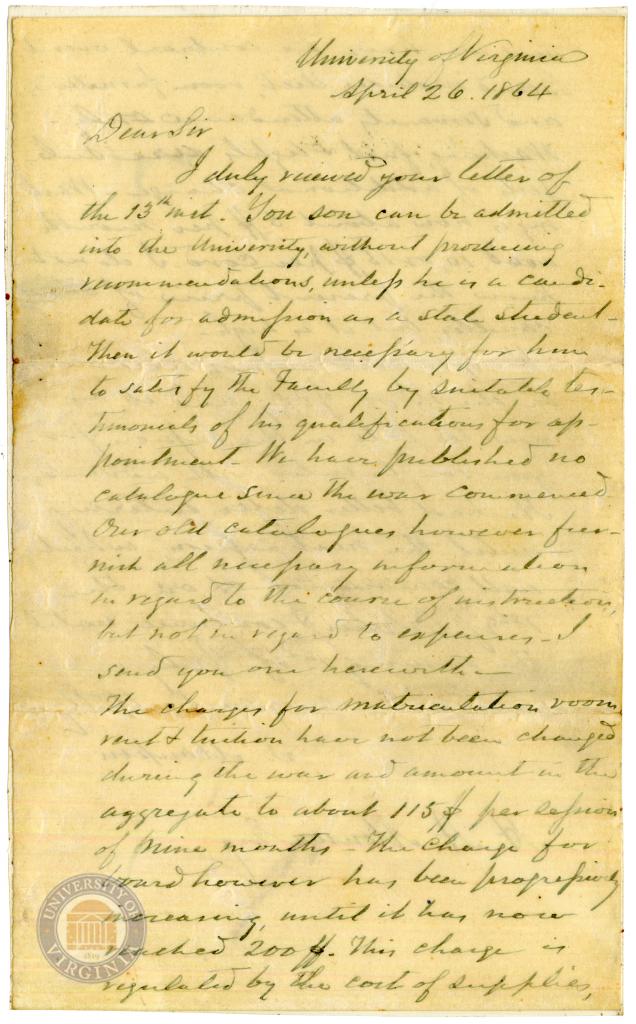 University of Virginia
April 26. 1864
Dear Sir
I duly received your letter of
the 13th inst. You son can be admitted
into the University, without producing
recommendations, unless he is a candi-
date for admission as a state student-
Then it would be necessary for him
to satisfy the Faculty by suitable tes-
timonials of his qualifications for ap-
pointment- We have published no
catalogue since the war commenced
Our old catalogues however fur-
nish all necessary information
in regard to the course of instruction,
but not in regard to expenses - I
send you one herewith -
The charges for matriculation room
rent & tuition have not been changed
during the war and amount in the
aggregate to about 115$ per session
of nine months - The charge for
board however has been progressively
increasing, until it has now
reached 200$. This charge is
regulated by the cost of supplies,
UNIVERSITY OF
VIRGINIA
1819